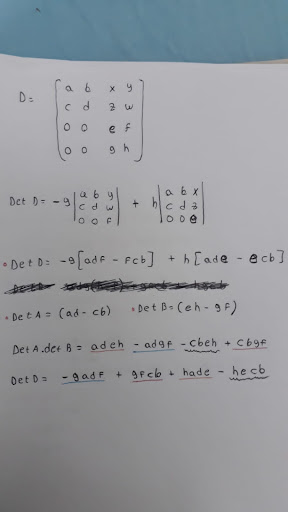 D= a b x y
c d z w
0 0 e f
0 0 g h
Det D= -g |a b y| + h |a b x|
|c d w| |c d z|
|0 0 f| |0 0 e|
• Det D= -g[adf - fcb] + h[ade - ecb]
• Det A = (ad - cb) • Det B = (eh - gf)
Det A.det B = adeh - adgf - cbeh + cbgf
Det D = -gadf + gfcb + hade - hecb